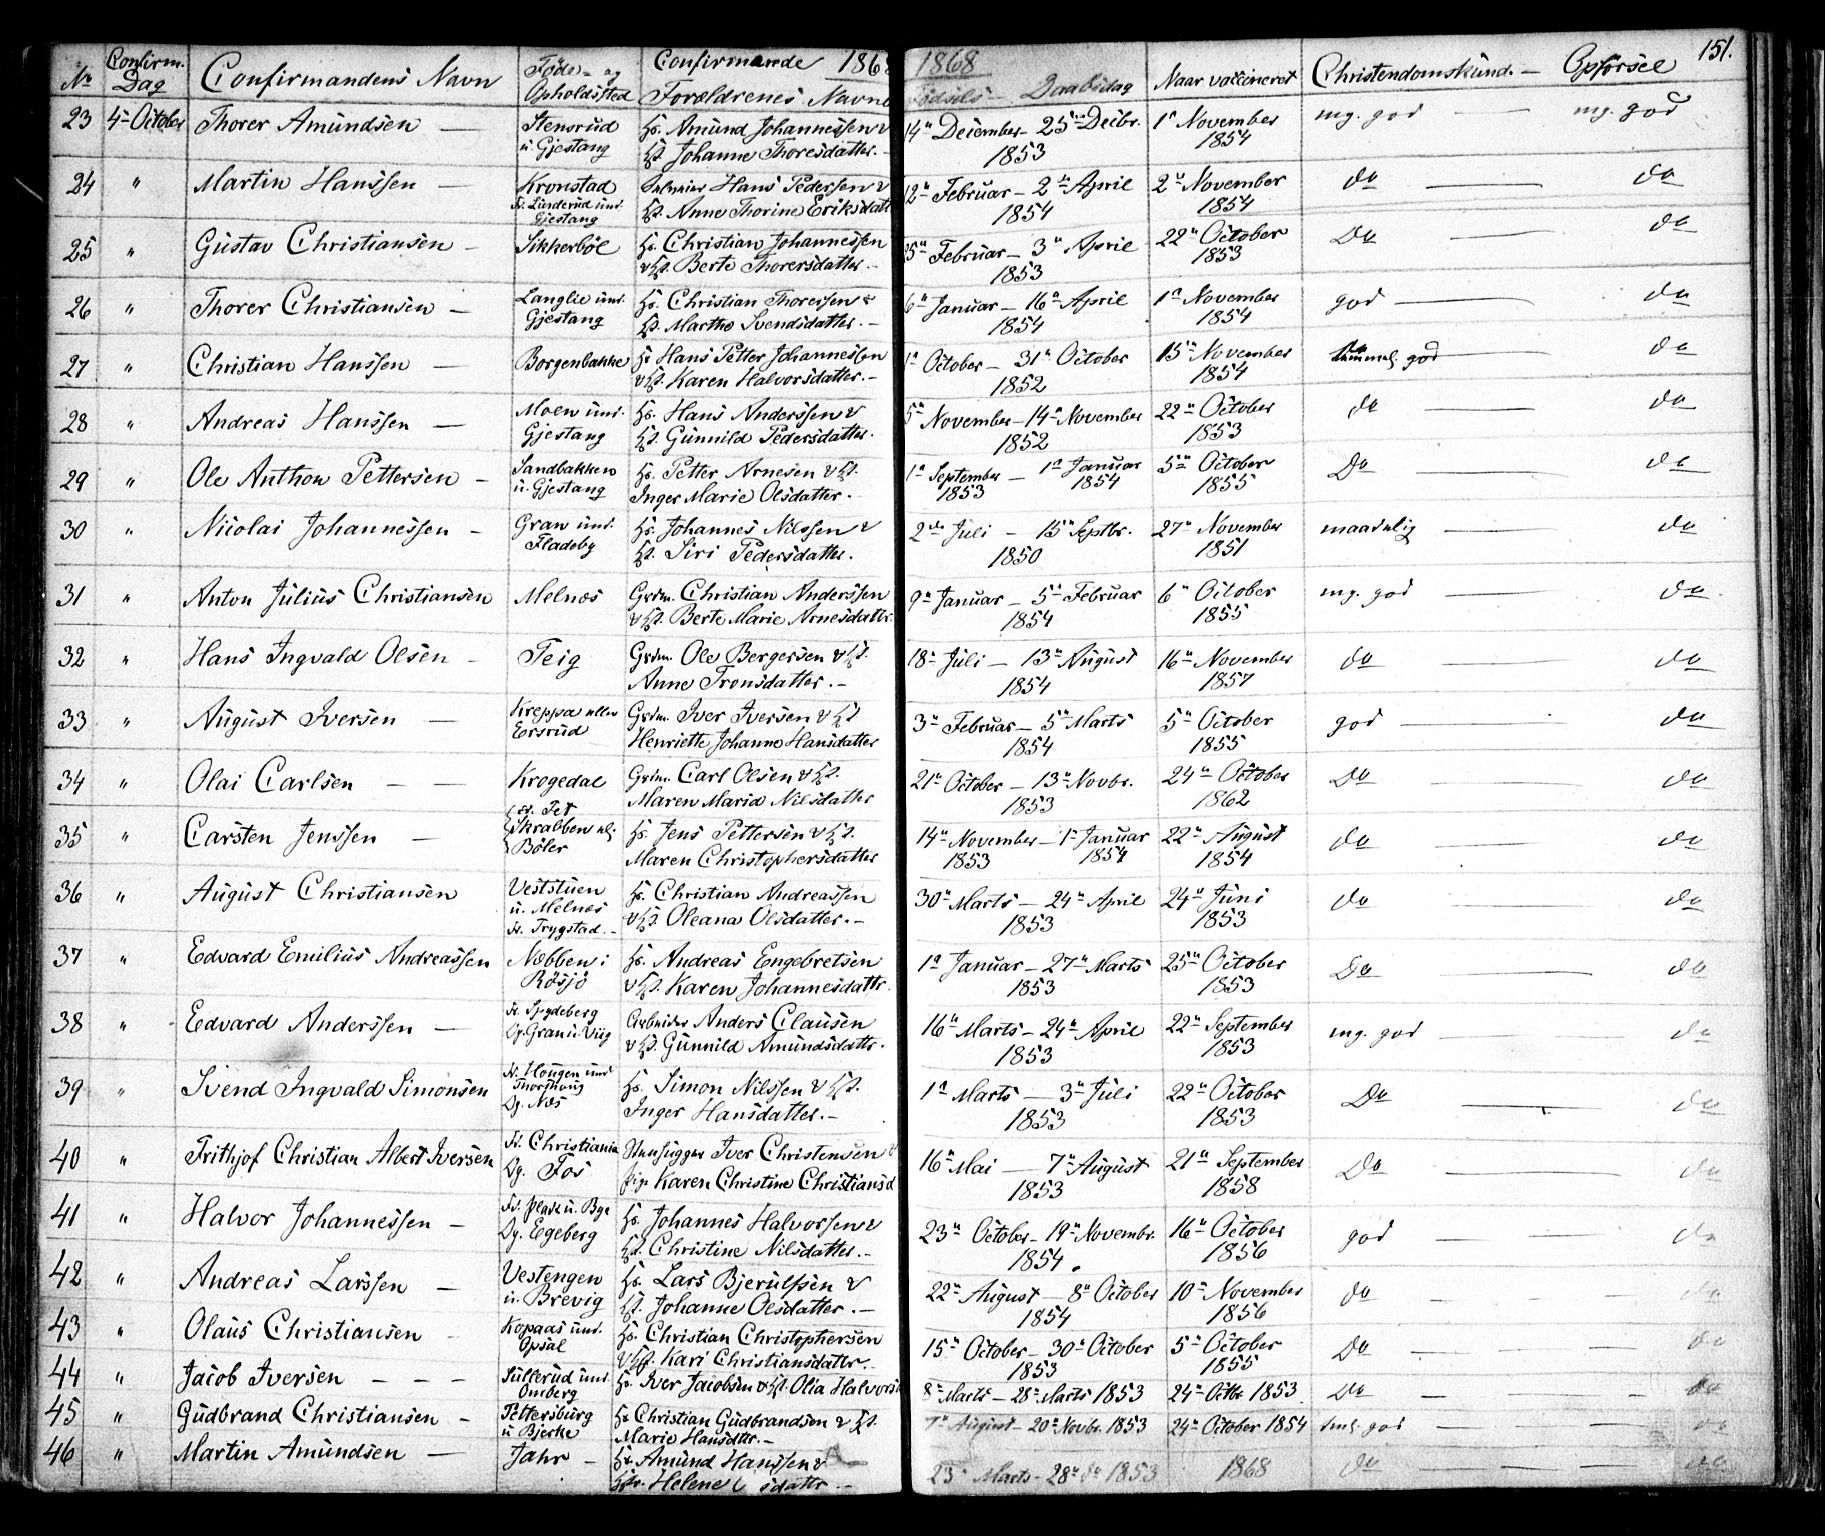 Confirmande 1868
1868 151.
No Confirm. Dag Confirmandens Navn Føde- og Opholdssted Forældrenes Navne Fødsels- Daabsdag Naar vaccineret Christendomskund. — Opførsel
23 4de October Thorer Amundsen — Stensrud Hs. Amund Johannessen & 14de December — 25de Decbr. 1ste November mg. god — mg. god
u. Gjestang Kh. Johanne Thoresdatter. — 1853 1854
24 " Martin Hanssen — Kronstad Hans Pedersen & 12te Februar — 2den April 2den November do — do
Fr. Linderud und. Gjestang Kh. Anne Thorine Eriksdatt 1854 1854
25 " Gustav Christiansen — Sikkerbøl Hs. Christian Johannessen 25de Februar — 3die April 22de October Do — do
& Kh. Berte Thorersdatter. — 1853 1853
26 " Thorer Christiansen — Langlie und. Hs. Christian Thoressen & 6te Januar — 16de April 1ste November god — do
Gjestang Kh. Marthe Svendsdatter. — 1854 1854
27 " Christian Hanssen — Borgenbakke Hs Hans Petter Johannessen 1ste October — 31te October 15de November temmel. god — do
& Kh. Karen Halvorsdatter. — 1852 1854
28 " Andreas Hanssen — Moen und. Hs. Hans Anderssen & 5te November — 14de November 22de October do — do
Gjestang Kh. Gunnild Pedersdatter. 1852 1853
29 " Ole Anthon Pettersen — Sandbakken Hs. Petter Arnesen & Kh. 1ste September — 1ste Januar 5te October Do — do
u. Gjestang Inger Marie Olsdatter. 1853 1854 1855
30 " Nicolai Johannessen — Gran und. Hs. Johannes Nilssen & 2den Juli — 15de Septbr. 27de November maadelig — do
Fladeby Kh. Siri Pedersdatter. 1850 1851
31 " Anton Julius Christiansen Melnæs Grdm. Christian Anderssen 9de Januar — 5te Februar 6te October mg. god — do.
& Kh. Berte Marie Arnesdattr. 1854 1855
32 " Hans Ingvald Olsen — Teig Grdm. Ole Bergersen & Kh. 18de Juli — 13de August 16de November do — do
Anne Tronsdatter. — 1854 1857
33 " August Iversen — Kreppa eller Grdm. Iver Iversen & Kh 3die Februar — 5te Marts 5te October god — do
Eersrud Henriette Johanne Hansdatter 1854 1855
34 " Olai Carlsen — — Krogedal Grdm. Carl Olsen & Kh. 21de October — 13de Novbr. 24de October Do — do
Maren Maria Nilsdatter 1853 1862
35 " Carsten Jenssen — Skrabben Hs. Jens Pettersen & Kh. 14de November — 1ste Januar 22de August do — do
Bøler Maren Christophersdatter 1853 1854 1854
36 " August Christiansen Veststuen Hs. Christian Andreassen 30te Marts — 24de April 24de Juni do — do
u. Melnæs & Kh. Oleana Olsdatter. — 1853 1853
Fr. Trygstad. —
37 " Edvard Emilius Andreassen Næbben i Hs. Andreas Engebretsen 1ste Januar — 27de Marts 25de October Do — do
Røsjø & Kh. Karen Johannesdattr. 1853 1853
38 " Edvard Anderssen — Fr. Spydeberg Arbeider Anders Clausen 16de Marts — 24de April 22de September mg. god — do
Og. Gran i. Viig & Kh. Gunnild Amundsdattr. 1853 1853
39 " Svend Ingvald Simonsen Fr. Hougen und Hs. Simon Nilssen & Kh. 1ste Marts — 3die Juli 22de October Do — do
Og. Næs Inger Hansdatter. — 1853 1853
40 " Frithjof Christian Albert Iversen Fr. Christiania Steenhugger Iver Christensen & 16de Mai — 7de August 21de September Do — do
Og. Fos pige Karen Christine Christiansd 1853 1858
41 " Halvor Johannessen — Fr. Plads u. Bye Hs. Johannes Halvorsen & 23de October — 19de Novembr. 16de October god — do
Og. Egeberg Kh. Christine Nilsdatter. — 1854 1856
42 " Andreas Larssen — Vestengen Hs. Lars Bjerulfsen & 22de August — 8de October 10de November do — do
u. Brevig Kh. Johanne Olsdatter. — 1854 1856
43 " Olaus Christiansen - Kopaas und. Hs. Christian Christophersen 15de October — 30te October 5te October Do — do
Opsal & Kh. Kari Christiansdattr. — 1853 1855
44 " Jacob Iversen — — — Sullerud und. Hs. Iver Jacobsen & Kh. Olia Halvorsd 8de Marts — 28de Marts 1853 24de Octbr 1853 Do — do
Omberg
45 " Gudbrand Christiansen — Pettersburg Hs Christian Gudbrandsen & Kh. 7de August — 20de Novbr. 1853 24de October 1854 tml. god — do
u Bjerke Marie Hansdtter. —
46 " Martin Amundsen — Jahr — Hs Amund Hanssen & 23de Marts — 28de do 1853 1868 do — do
Helene sdattr. —